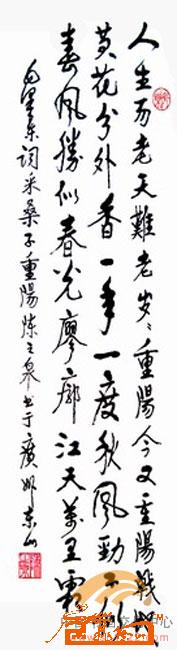 人生易老天難老岁〻重陽今又重陽戰地
黄花分外香一年一度秋風勁不似
春風勝似春光廖廓江天萬里霜
毛澤东词采桑子重陽书于廣州東山